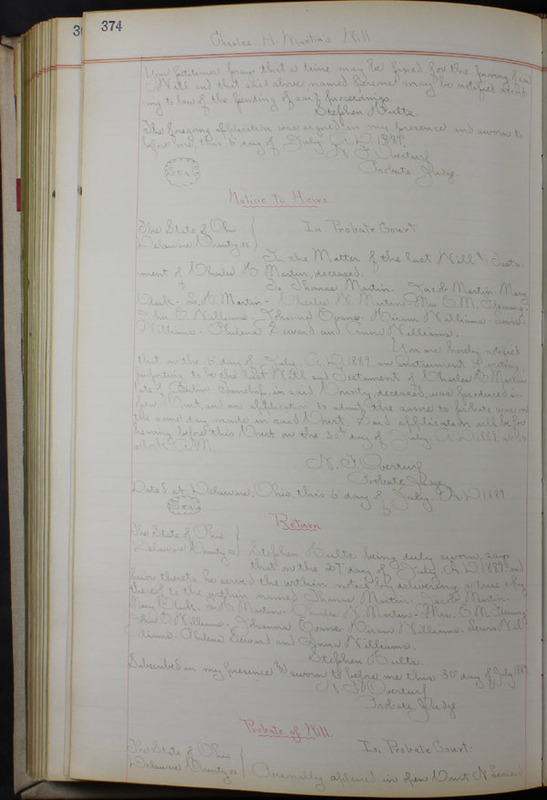 374
Charles H. Martin's Will
Your Petitioner prays that a time may be fixed for the proving of said
Will and that the above named persons may be notified accord
ing to law of the pending of said proceedings
Stephen Hults
The foregoing application was signed in my presence and sworn to
before me, this 6 day of July A.D. 1889.
N. F. Overturf
Probate Judge
Seal
Notice to Heirs
The State of Ohio
Delaware County ss
In Probate Court
In the Matter of the last Will & Testa-
ment of Charles H. Martin, deceased.
To Thomas Martin - Jacob Martin - Mary
Clark - S. H. Martin - Charles N. Martin - Mrs. E. M. Fleming -
John O. Williams - Johanna Evans - Hiram Williams -
Williams - Philena Seward and Anna Williams.
You are hereby notified
that on the 6 day of July A.D. 1889, an instrument of writing
purporting to be the last Will and Testament of Charles H. Martin
late of Berlin Township, in said County, deceased, was produced in
open Court, and an application to admit the same to probate was on
the same day made in said Court. Said application will be for
hearing before this Court on the 30 day of July A.D. 1889, at
o'clock A.M.
N. F. Overturf
Probate Judge
Dated at Delaware, Ohio this 6 day of July A.D. 1889
Seal
Return
The State of Ohio
Delaware County ss
Stephen Hults being duly sworn, says
that on the 27 day of July A.D. 1889, and
prior thereto he served the within notice by delivering a true copy
thereof to the within named Thomas Martin - Jacob Martin -
Mary Clark - S. H. Martin - Charles N. Martin - Mrs. E. M. Fleming
John O. Williams - Johanna Evans - Hiram Williams - Wil
liams - Philena Seward and Anna Williams.
Stephen Hults.
Subscribed in my presence & sworn to before me this 30 day of July 1889
N. F. Overturf
Probate Judge
Probate of Will.
The State of Ohio
Delaware County ss
In Probate Court.
Personally appeared in open Court N